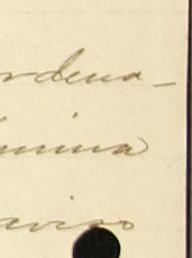 rdena-
imina
aviso